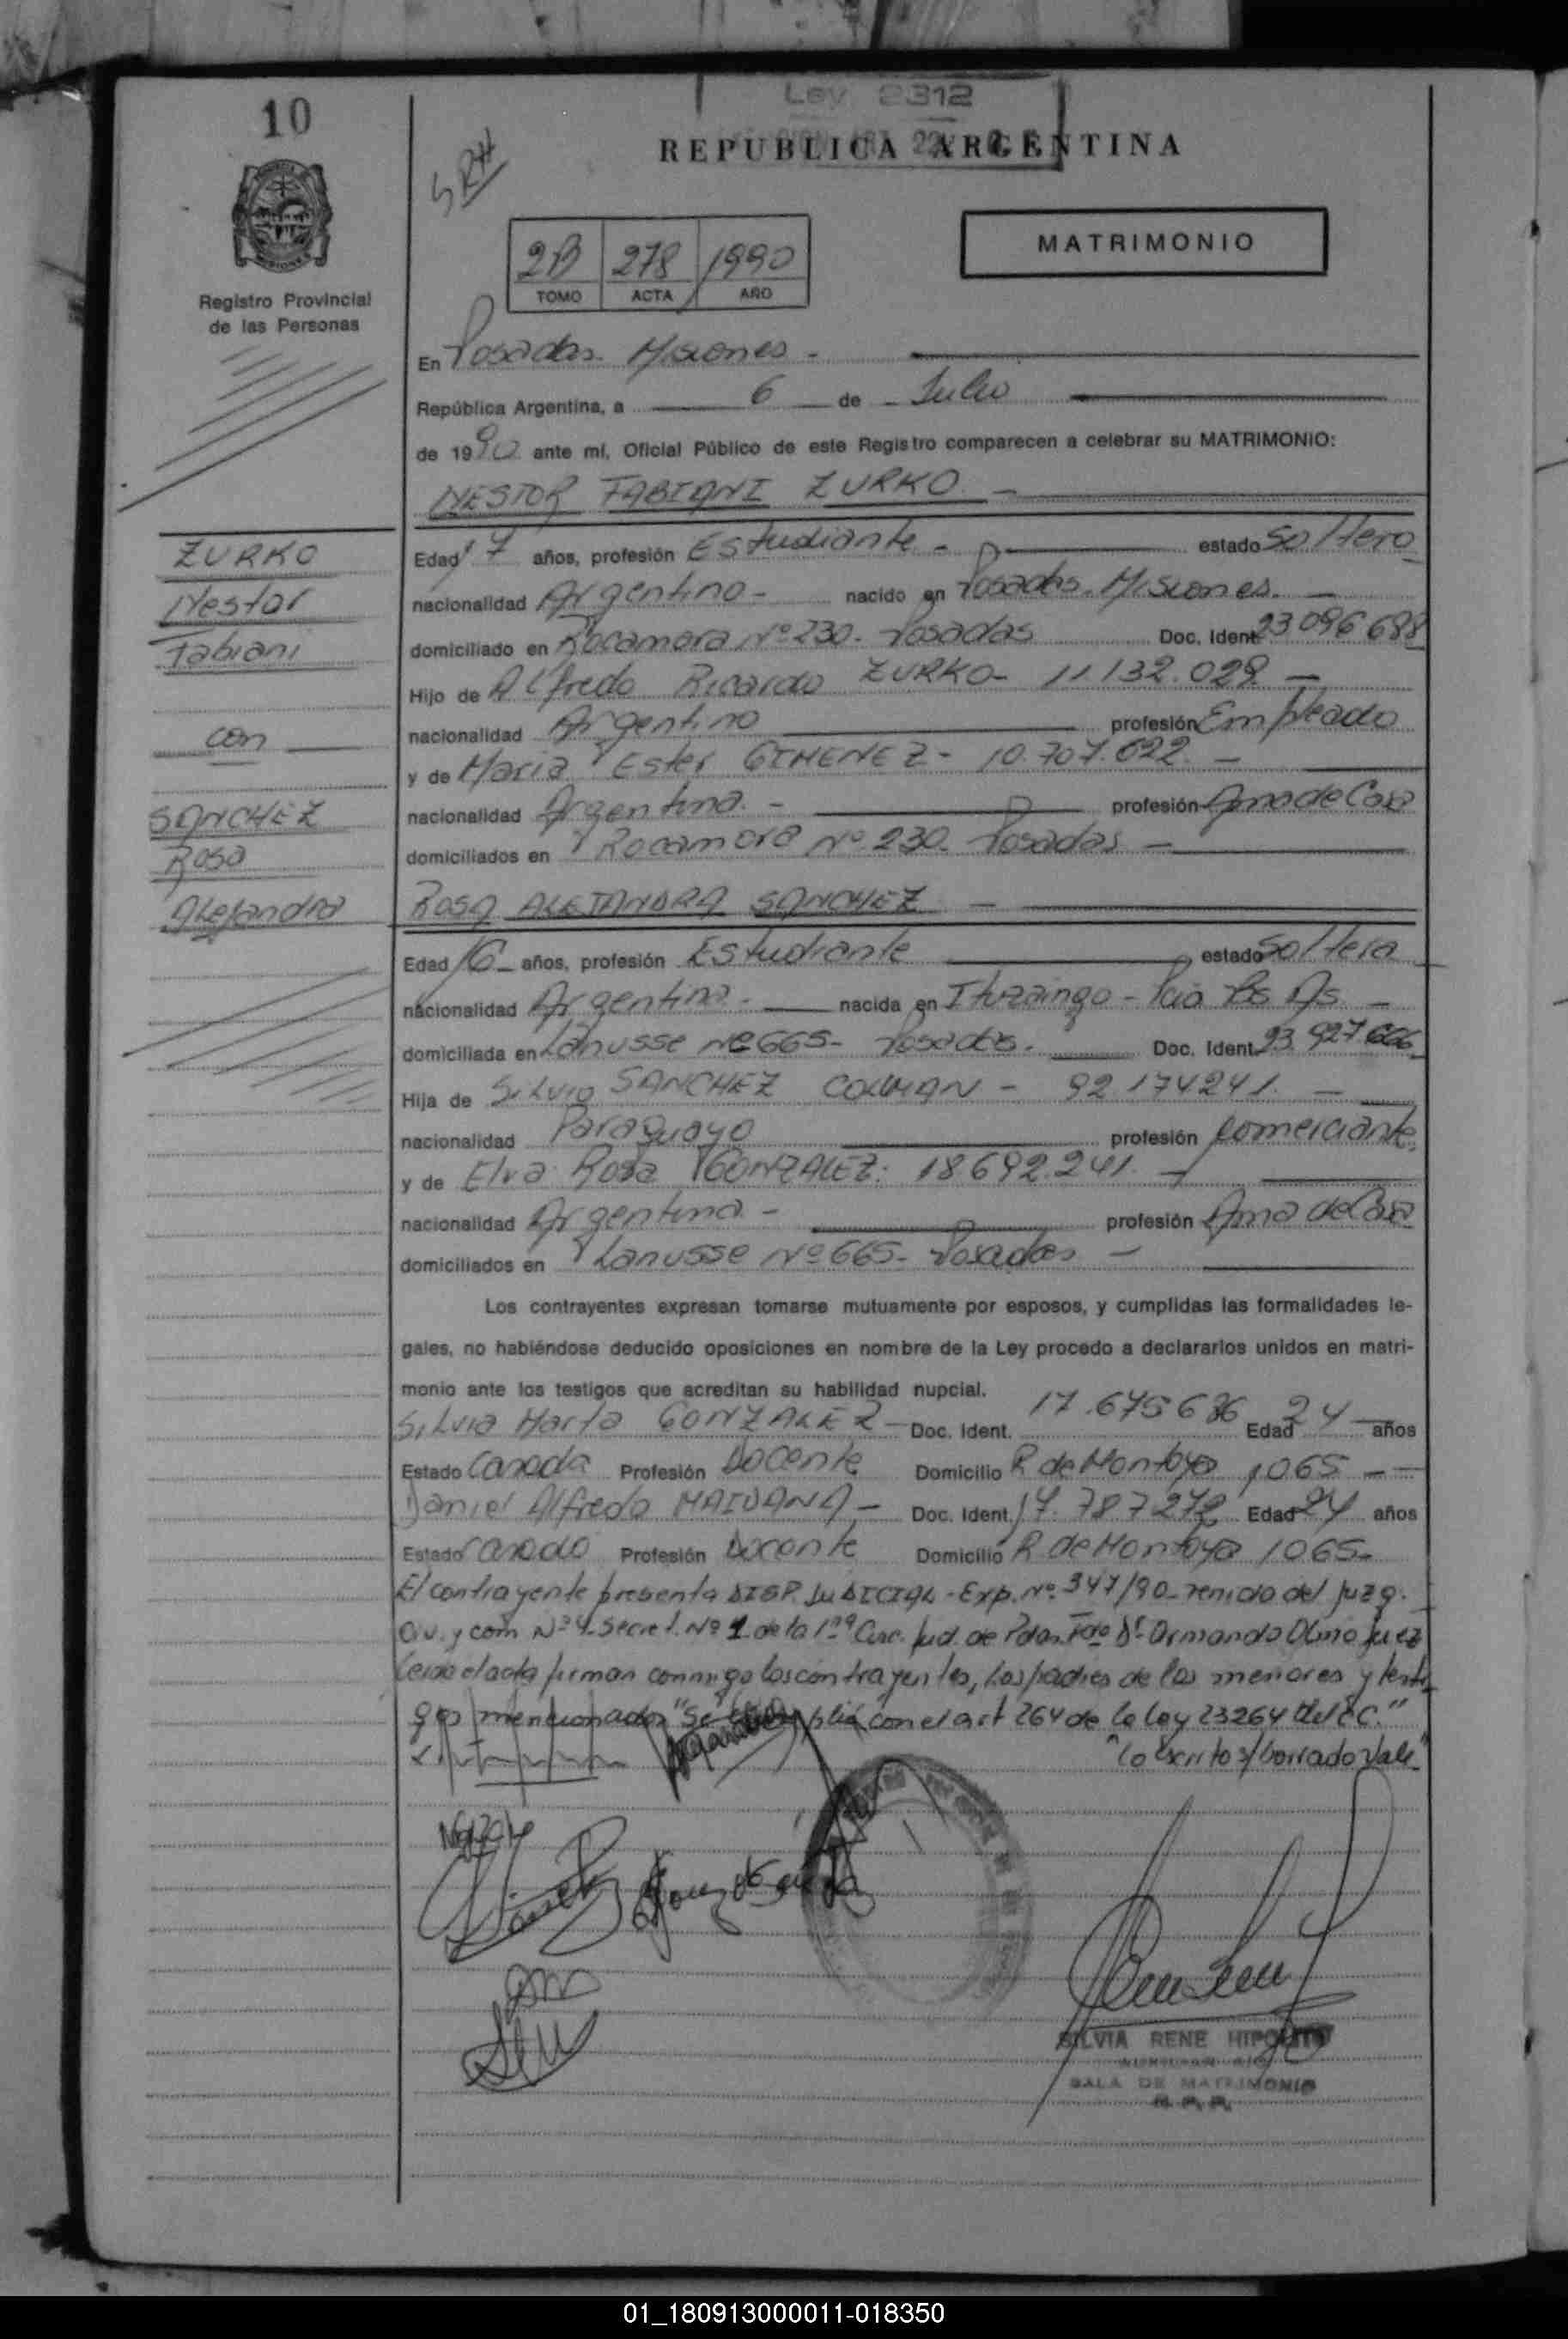 10
Ley 2312
REPUBLICA ARGENTINA
SRH
MATRIMONIO
2B 278 1990
TOMO ACTA AÑO
Registro Provincial
de las Personas
En Posadas - Misiones -
República Argentina, a 6 de Julio
de 1990 ante mí, Oficial Público de este Registro comparecen a celebrar su MATRIMONIO:
NESTOR FABIANI ZURKO -
ZURKO
Nestor
Fabiani
con
SANCHEZ
Rosa
Alejandra
Edad 17 años, profesión Estudiante - estado Soltero
nacionalidad Argentino - nacido en Posadas. Misiones. -
domiciliado en Rocamora Nº 230. Posadas Doc. Ident. 23 096 688
Hijo de Alfredo Ricardo ZURKO - 11.132.028 -
nacionalidad Argentino profesión Empleado
y de Maria Ester GIMENEZ - 10.707.622. -
nacionalidad Argentina. - profesión Ama de Casa
domiciliados en Rocamora Nº 230. Posadas -
ROSA ALEJANDRA SANCHEZ -
Edad 16 años, profesión Estudiante estado Soltera
nacionalidad Argentina. - nacida en Ituzaingo - Pcia Bs As -
domiciliada en Lanusse Nº 665 - Posadas. Doc. Ident. 23.927.666
Hija de Silvio SANCHEZ COLMAN - 92.174241. -
nacionalidad Paraguayo profesión Comerciante
y de Elva Rosa GONZALEZ. 18.692.241. -
nacionalidad Argentina - profesión Ama de Casa
domiciliados en Lanusse Nº 665 - Posadas -
Los contrayentes expresan tomarse mutuamente por esposos, y cumplidas las formalidades le-
gales, no habiéndose deducido oposiciones en nombre de la Ley procedo a declararlos unidos en matri-
monio ante los testigos que acreditan su habilidad nupcial.
Silvia Marta GONZALEZ - Doc. Ident. 17.675636 Edad 24 años
Estado Casada Profesión Docente Domicilio R de Montoya 1065 -
Daniel Alfredo MAIDANA - Doc. Ident. 17.787272 Edad 24 años
Estado Casado Profesión Docente Domicilio R de Montoya 1065 -
El contrayente presenta DISP. JUDICIAL - Exp. Nº 347/90 - venido del Juzg.
Civ. y Com Nº 4 - Secret. Nº 1 de la 1ra Circ. Jud. de Pdas. Fdo Dr. Armando Olmo Juez
Leida el acta firman conmigo los contrayentes, los padres de los menores y testi
gos mencionados "Se cumplió con el art 264 de la Ley 23264 del C.C."
"lo escrito s/borrado vale"
SILVIA RENE HIPOLITO
SALA DE MATRIMONIO
R. P. P.
01_180913000011-018350